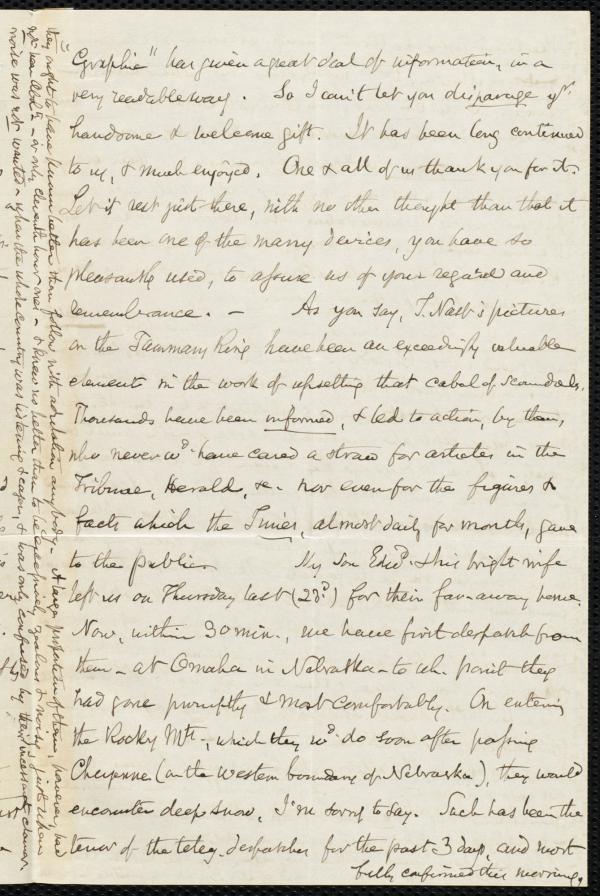 Graphic" has given a great deal of information, in a
very readable way. So I can't let you disparage yr.
handsome & welcome gift. It has been long continued
to us, & much enjoyed. One & all of us thank you for it.
Let it rest just there, with no other thought than that it
has been one of the many devices, you have so
pleasantly used, to assure us of your regard and
remembrance. — As you say, T. Nast's pictures
on the Tammany Ring have been an exceedingly valuable
element in the work of upsetting that cabal of scoundrels.
Thousands have been informed, & led to action, by them,
who never wd. have cared a straw for articles in the
Tribune, Herald, &c. nor even for the figures &
facts which the Times, almost daily for months, gave
to the public. My son Edwd. & his bright wife
left us on Thursday last (23d.) for their far-away home.
Now, within 30 min., we have first despatch from
them – at Omaha in Nebraska – to wh. point they
had gone promptly & most comfortably. On entering
the Rocky Mts., which they wd. do soon after passing
Cheyenne (on the Western boundary of Nebraska), they would
encounter deep snow, I'm sorry to say. Such has been the
tenor of the teleg. despatches for the past 3 days, and most
fully confirmed this morning.
they ought to have known better than follow with adulation any body. A large proportion of them, however, had
not been asked – or only eleventh hour men – & knew no better than to be exceedingly zealous & noisy just when
noise was not wanted & when the whole country was listening & eager, & was only confused by their incessant clamor.